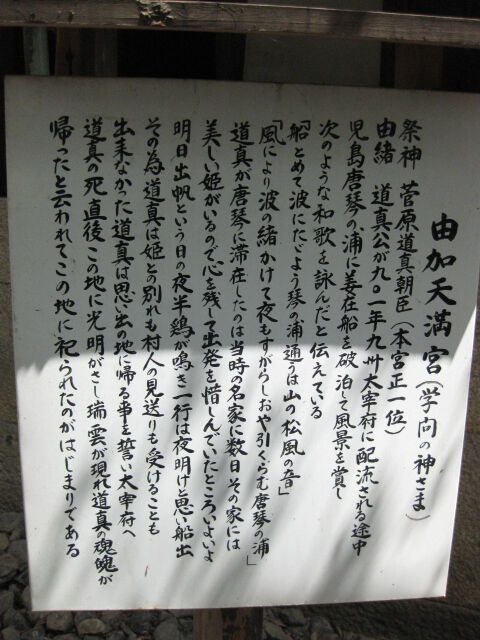 由加天満宮(学問の神さま)
祭神 菅原道真朝臣(本宮正一位)
由緒 道真公が九〇一年九卅太宰府に配流される途中
児島唐琴の浦に姜在船を破泊して風景を賞し
次のような和歌を詠んだと伝えている
「船とめて波にたゞよう琴の浦通うは山の松風の音」
「風により波の緒かけて夜もすがらしおや引くらむ唐琴の浦」
道真が唐琴に滞在したのは当時の名家に数日その家には
美しい姫がいるので心を残して出発を惜しんでいたところいよいよ
明日出帆という日の夜半鶏が鳴き一行は夜明けと思い船出
その為道真は姫との別れも村人の見送りも受けることも
出来なかった道真は思い出の地に帰る事を誓い太宰府へ
道真の死直後この地に光明がさし瑞雲が現れ道真の魂魄が
帰ったと云われてこの地に祀られたのがはじまりである